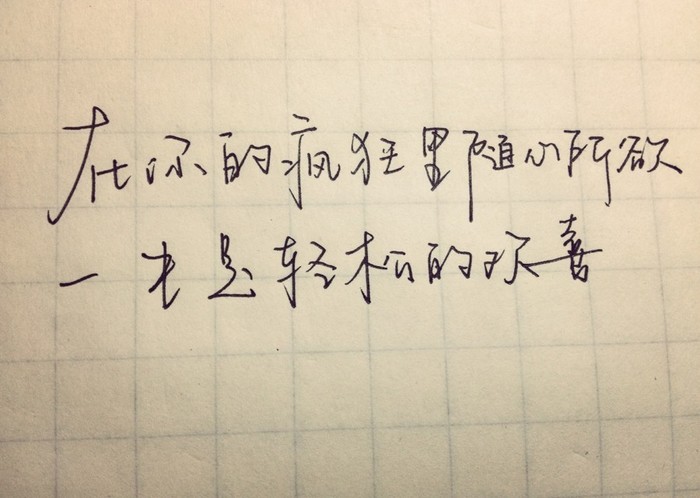 在你的疯狂里随心所欲
—才是轻松的欢喜